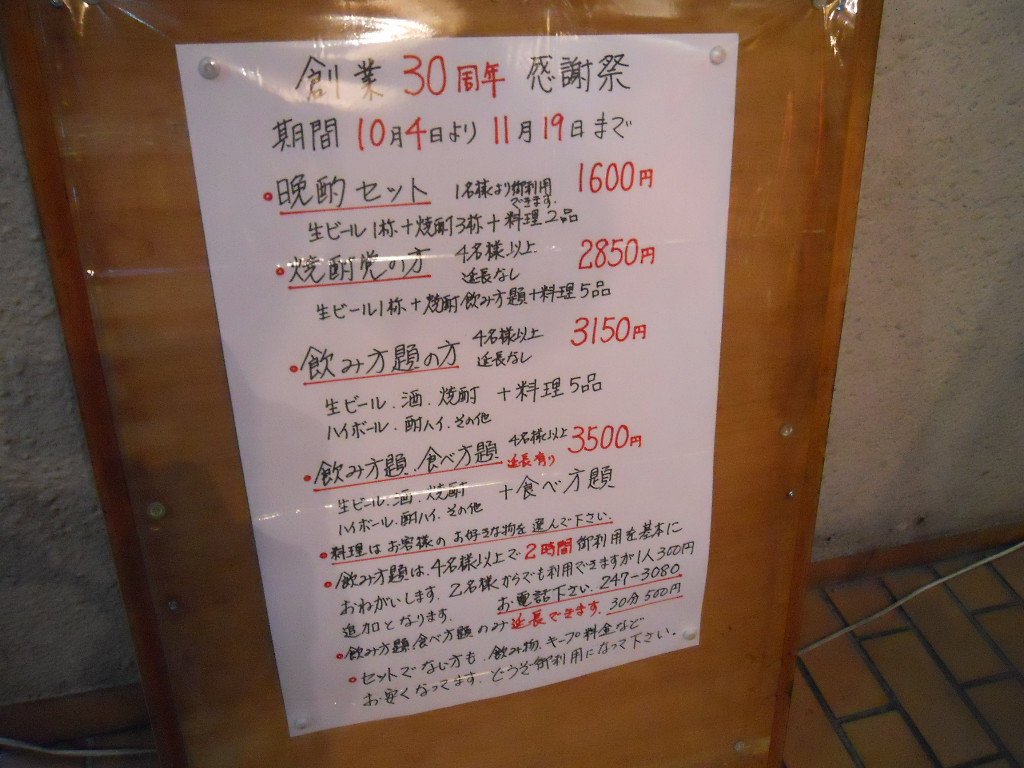 創業30周年 感謝祭
期間 10月4日より11月19日まで
・晩酌セット 1名様より御利用できます. 1600円
生ビール1杯+焼酎3杯+料理2品
・焼酎党の方 4名様以上. 延長なし 2850円
生ビール1杯+焼酎飲み方題+料理5品
・飲み方題の方 4名様以上 延長なし 3150円
生ビール.酒.焼酎 +料理5品
ハイボール.酎ハイ.その他
・飲み方題.食べ方題 4名様以上 延長有り 3500円
生ビール.酒.焼酎 +食べ方題
ハイボール.酎ハイ.その他
・料理はお客様のお好きな物を選んで下さい.
・飲み方題は.4名様以上で2時間御利用を基本に
おねがいします.2名様からでも利用できますが1人300円
追加となります. お電話下さい.247-3080
・飲み方題.食べ方題のみ延長できます.30分500円
・セットでない方も.飲み物.キープ料金など
お安くなってます.どうぞ御利用になって下さい.